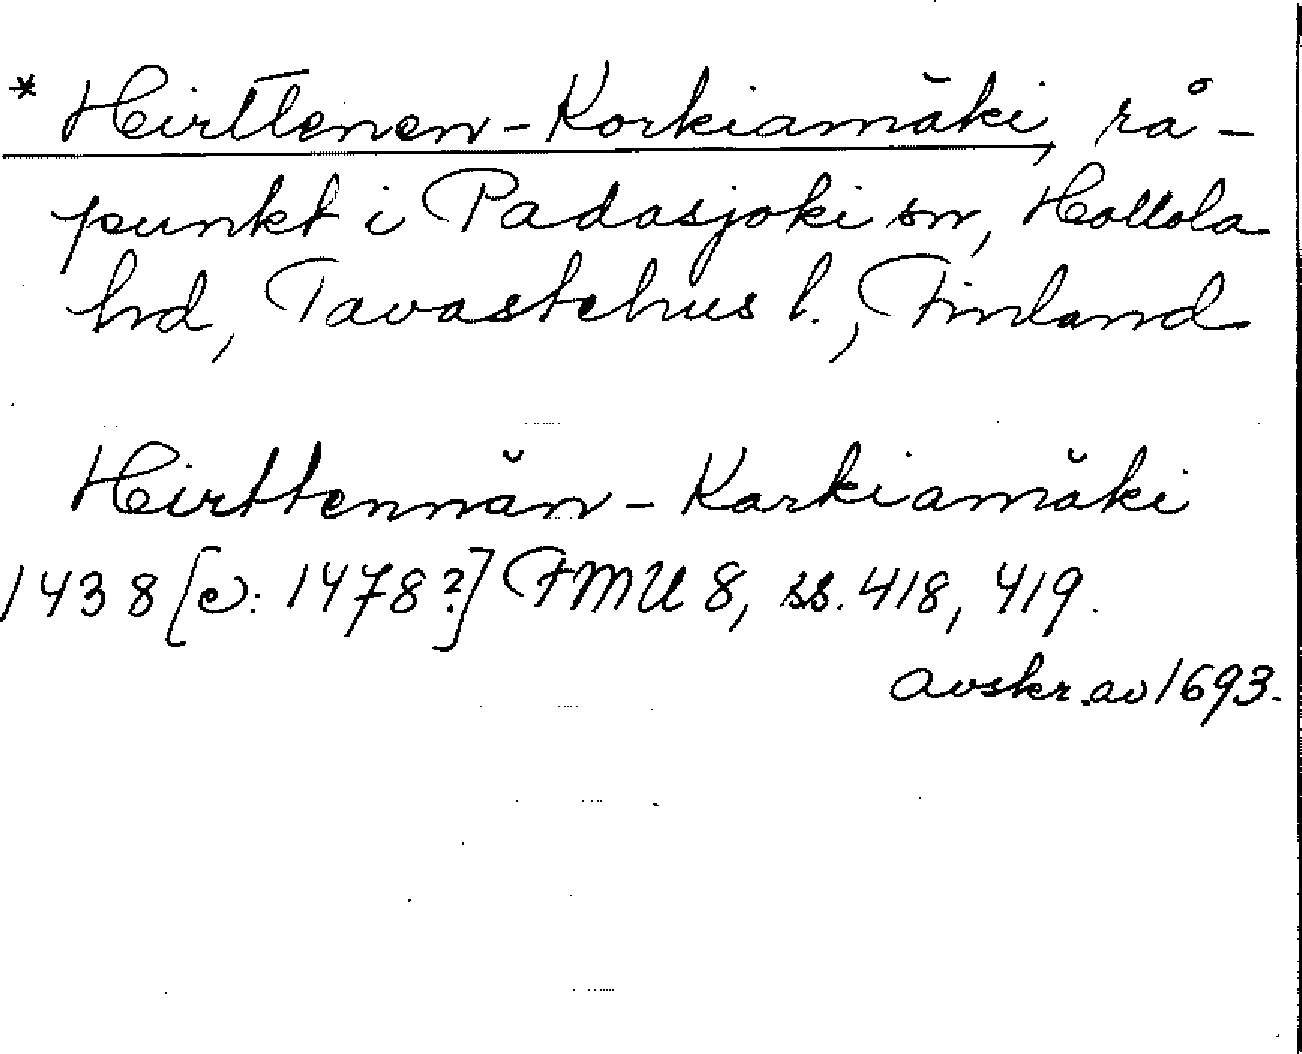 * Heirttenen-Korkiamäki, rå-
punkt i Padasjoki sn, Hollola
hd, Tavastehus l., Finland
Heirttennän-Karkiamäki
1438 [ɔ: 1478?] FMU 8, ss. 418, 419.
avskr. av 1693.